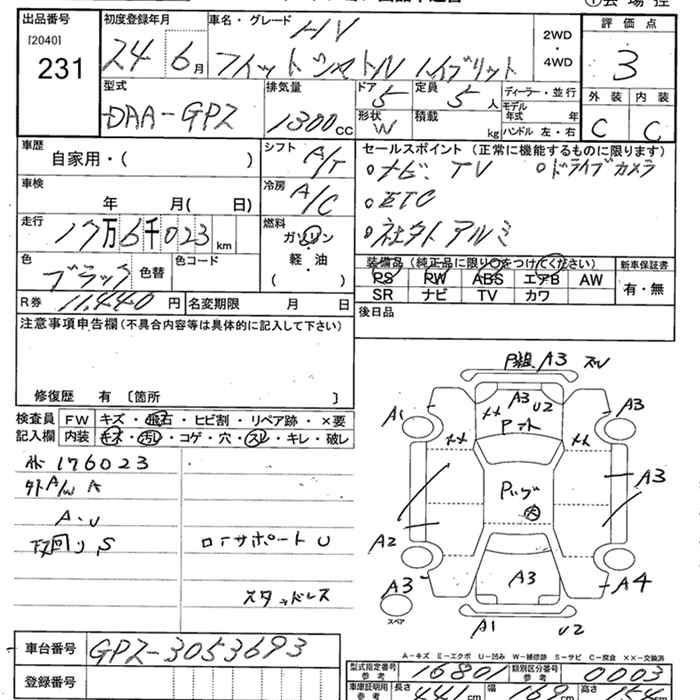 出品番号 [2040] 231
初度登録年月 24 6月
車名・グレード HV
フィットシャトル ハイブリット
2WD・4WD
評価点 3
外装 内装
C C
型式 DAA-GP2
排気量 1300CC
ドア 5 定員 5人
形状 W 積載 kg
ディーラー・並行
モデル年式 年
ハンドル 左・右
車歴 自家用・( )
シフト A/T
セールスポイント(正常に機能するものに限ります)
ナビ、TV ドライブカメラ
ETC
社外アルミ
車検 年 月( 日)
冷房 A/C
走行 17万6千023km
燃料 ガソリン 軽・油 ( )
色 ブラック 色替 色コード
装備品(純正品に限り○をつけてください) 新車保証書
PS PW ABS エアB AW 有・無
SR ナビ TV カワ
R券 11,440円 名変期限 月 日
後日品
注意事項申告欄(不具合内容等は具体的に記入して下さい)
修復歴 有 〔箇所 〕
検査員 FW キズ・飛石・ヒビ割・リペア跡・×要
記入欄 内装 キズ・汚レ・コゲ・穴・スレ・キレ・破レ
176023
外A/W A
A・U
下回りS
ロアサポートU
スタッドレス
A3 ズレ
A3 U2
A1 A3
A3
A2
A3 A3 A4
スペア
A1 U2
A-キズ E-エクボ U-凹み W-補修跡 S-サビ C-腐食 ××-交換済
車台番号 GP2-3053693
登録番号
型式指定番号 参考 16801 類別区分番号 参考 0003
車庫証明用 参考 長さ 441cm 幅 169cm 高さ 154cm